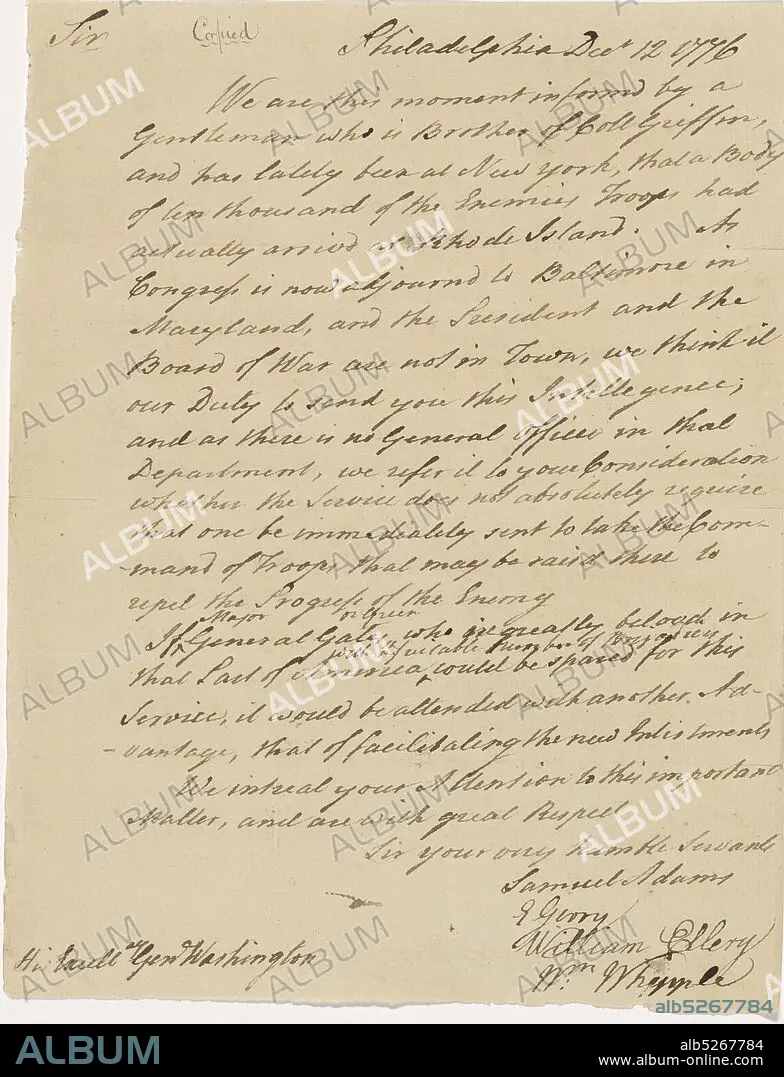 Sir
Copied
Philadelphia Decr 12 1776
We are this moment informd by a
Gentleman who is Brother of Coll Griffin,
and has lately been at New York, that a Body
of ten thousand of the Enemies Troops had
actually arrivd at Rhode Island. As
Congress is now adjournd to Baltimore in
Maryland, and the President and the
Board of War are not in Town, we think it
our Duty to send you this Intellegence;
and as there is no General Officer in that
Department, we refer it to your Consideration
whether the Service does not absolutely require
that one be immediately sent to take the Com-
-mand of Troops that may be raisd there to
repel the Progress of the Enemy
Major or Green
If General Gates who is greatly belovd in
with a suitable Number of Brigadiers
that Part of America could be spared for this
Service, it would be attended with another Ad-
-vantage, that of facilitating the new Enlistments
We intreat your Attention to this important
Matter, and are with great Respect
Sir your very humble Servants
Samuel Adams
E Gerry
William Ellery
Wm Whipple
His Excelly Genl Washington
ALBUM
alb5267784
ALBUM
alb5267784
www.album-online.com